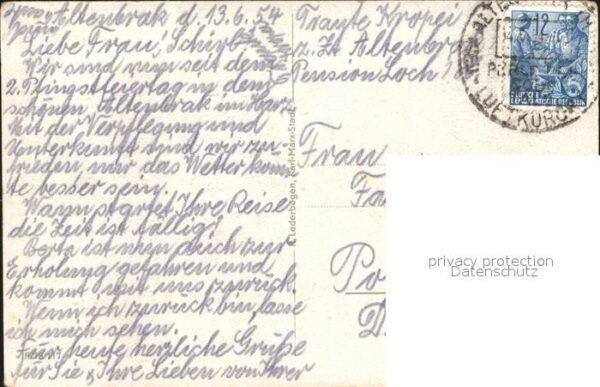 Altenbrak d. 13.6.54
Liebe Frau Schirb
Wir sind nun seit dem
2. Pfingstfeiertag in dem
schönen Altenbrak im Harz.
Mit der Verpflegung und
Unterkunft sind wir zu-
frieden, nur das Wetter könn-
te besser sein.
Wann startet Ihre Reise
die Zeit ist fällig?
Berta ist nun auch zur
Erholung gefahren und
kommt mit uns zurück.
Wenn ich zurück bin, lasse
ich mich sehen.
Für heute herzliche Grüße
für Sie & Ihre Lieben von Ihrer
Traute
Traute Kropei
z. Zt. Altenbrak
Pension Loch
12
DEUTSCHE
DEMOKRATISCHE REPUBLIK
LUFTKURORT
Lederbogen, Karl-Marx-Stadt
Frau
privacy protection
Datenschutz